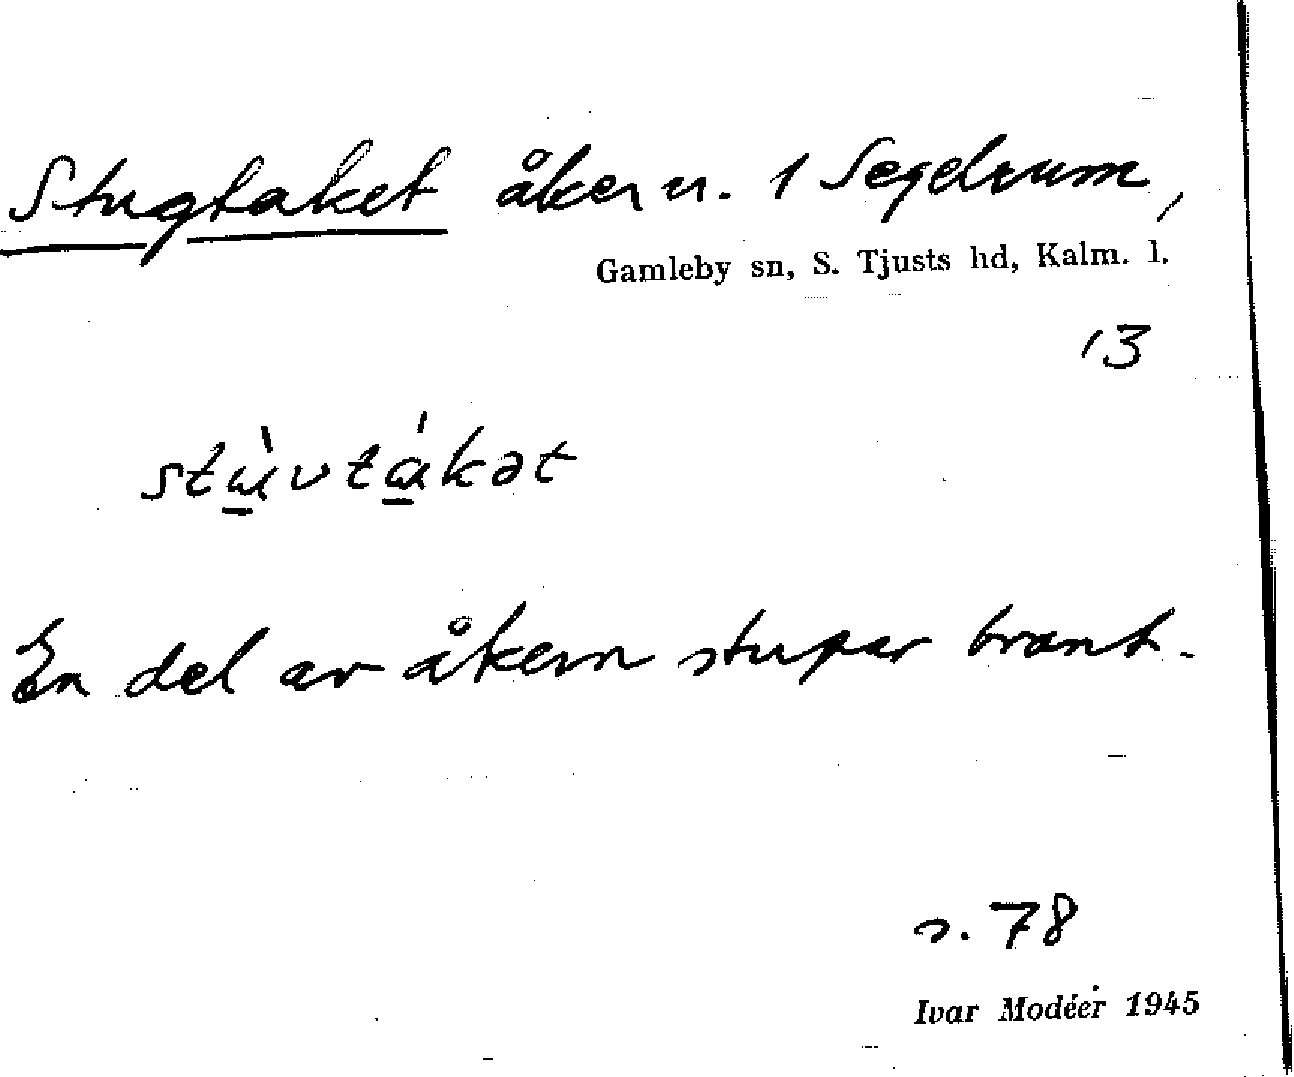 Stugtaket åker n. 1 Segelrum,
Gamleby sn, S. Tjusts hd, Kalm. l.
13
En del av åkern stupar brant.
s. 78
Ivar Modéer 1945